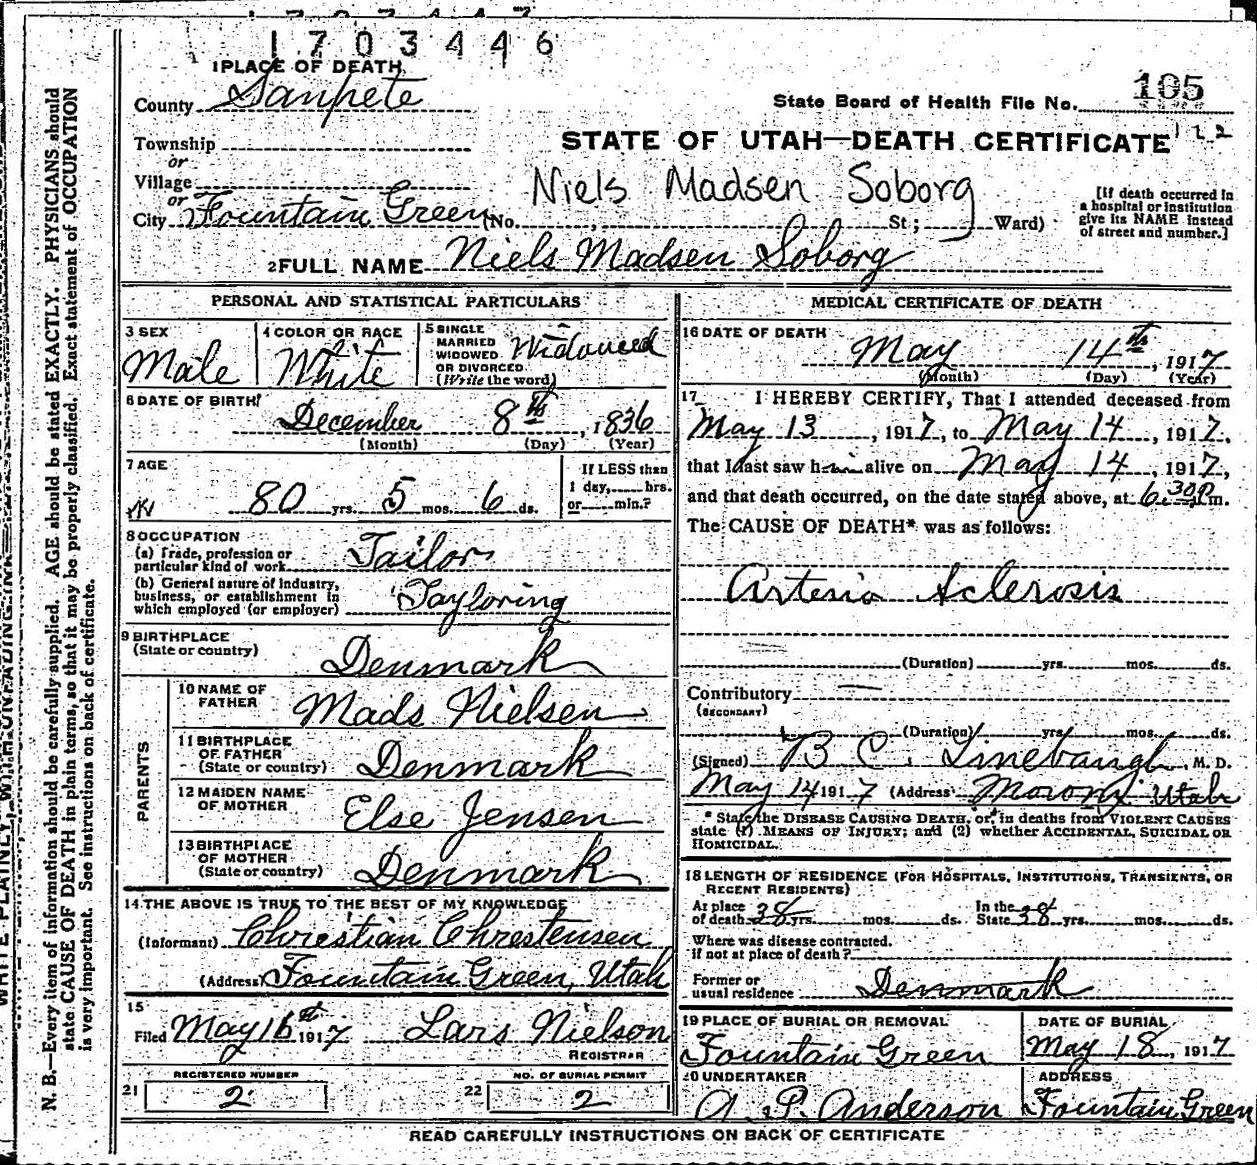 1703446
1 PLACE OF DEATH
County Sanpete
State Board of Health File No. 105
Township
or
STATE OF UTAH—DEATH CERTIFICATE 122
Village
or
Niels Madsen Soborg
City Fountain Green (No. St; Ward)
[If death occurred in
a hospital or institution
give its NAME instead
of street and number.]
2 FULL NAME Niels Madsen Soborg
PERSONAL AND STATISTICAL PARTICULARS
3 SEX
Male
4 COLOR OR RACE
White
5 SINGLE
MARRIED
WIDOWED
OR DIVORCED
(Write the word)
Widowed
6 DATE OF BIRTH
December 8th, 1836
(Month) (Day) (Year)
7 AGE
80 yrs. 5 mos. 6 ds.
If LESS than
1 day, hrs.
or min.?
8 OCCUPATION
(a) Trade, profession or
particular kind of work Tailor
(b) General nature of industry,
business, or establishment in
which employed (or employer) Tayloring
9 BIRTHPLACE
(State or country)
Denmark
PARENTS
10 NAME OF
FATHER
Mads Nielsen
11 BIRTHPLACE
OF FATHER
(State or country)
Denmark
12 MAIDEN NAME
OF MOTHER
Else Jensen
13 BIRTHPLACE
OF MOTHER
(State or country)
Denmark
14 THE ABOVE IS TRUE TO THE BEST OF MY KNOWLEDGE
(Informant) Christian Chrestensen
(Address) Fountain Green, Utah
15
Filed May 16st 1917 Lars Nielson
REGISTRAR
21 REGISTERED NUMBER
2
22 NO. OF BURIAL PERMIT
2
MEDICAL CERTIFICATE OF DEATH
16 DATE OF DEATH
May 14th, 1917
(Month) (Day) (Year)
17 I HEREBY CERTIFY, That I attended deceased from
May 13, 1917, to May 14, 1917,
that I last saw him alive on May 14, 1917,
and that death occurred, on the date stated above, at 6.30 p.m.
The CAUSE OF DEATH* was as follows:
Arterio Sclerosis
(Duration) yrs. mos. ds.
Contributory
(SECONDARY)
(Duration) yrs. mos. ds.
(Signed) B C. Linebaugh, M. D.
May 14 1917 (Address) Moroni Utah
* State the DISEASE CAUSING DEATH, or, in deaths from VIOLENT CAUSES
state (1) MEANS OF INJURY; and (2) whether ACCIDENTAL, SUICIDAL OR
HOMICIDAL.
18 LENGTH OF RESIDENCE (FOR HOSPITALS, INSTITUTIONS, TRANSIENTS, OR
RECENT RESIDENTS)
At place In the
of death 38 yrs. mos. ds. State 38 yrs. mos. ds.
Where was disease contracted.
if not at place of death?
Former or
usual residence Denmark
19 PLACE OF BURIAL OR REMOVAL
Fountain Green
DATE OF BURIAL
May 18, 1917
20 UNDERTAKER
A. P. Anderson
ADDRESS
Fountain Green
READ CAREFULLY INSTRUCTIONS ON BACK OF CERTIFICATE
N. B.—Every item of information should be carefully supplied. AGE should be stated EXACTLY. PHYSICIANS should
state CAUSE OF DEATH in plain terms, so that it may be properly classified. Exact statement of OCCUPATION
is very important. See instructions on back of certificate.
WRITE PLAINLY, WITH UNFADING INK